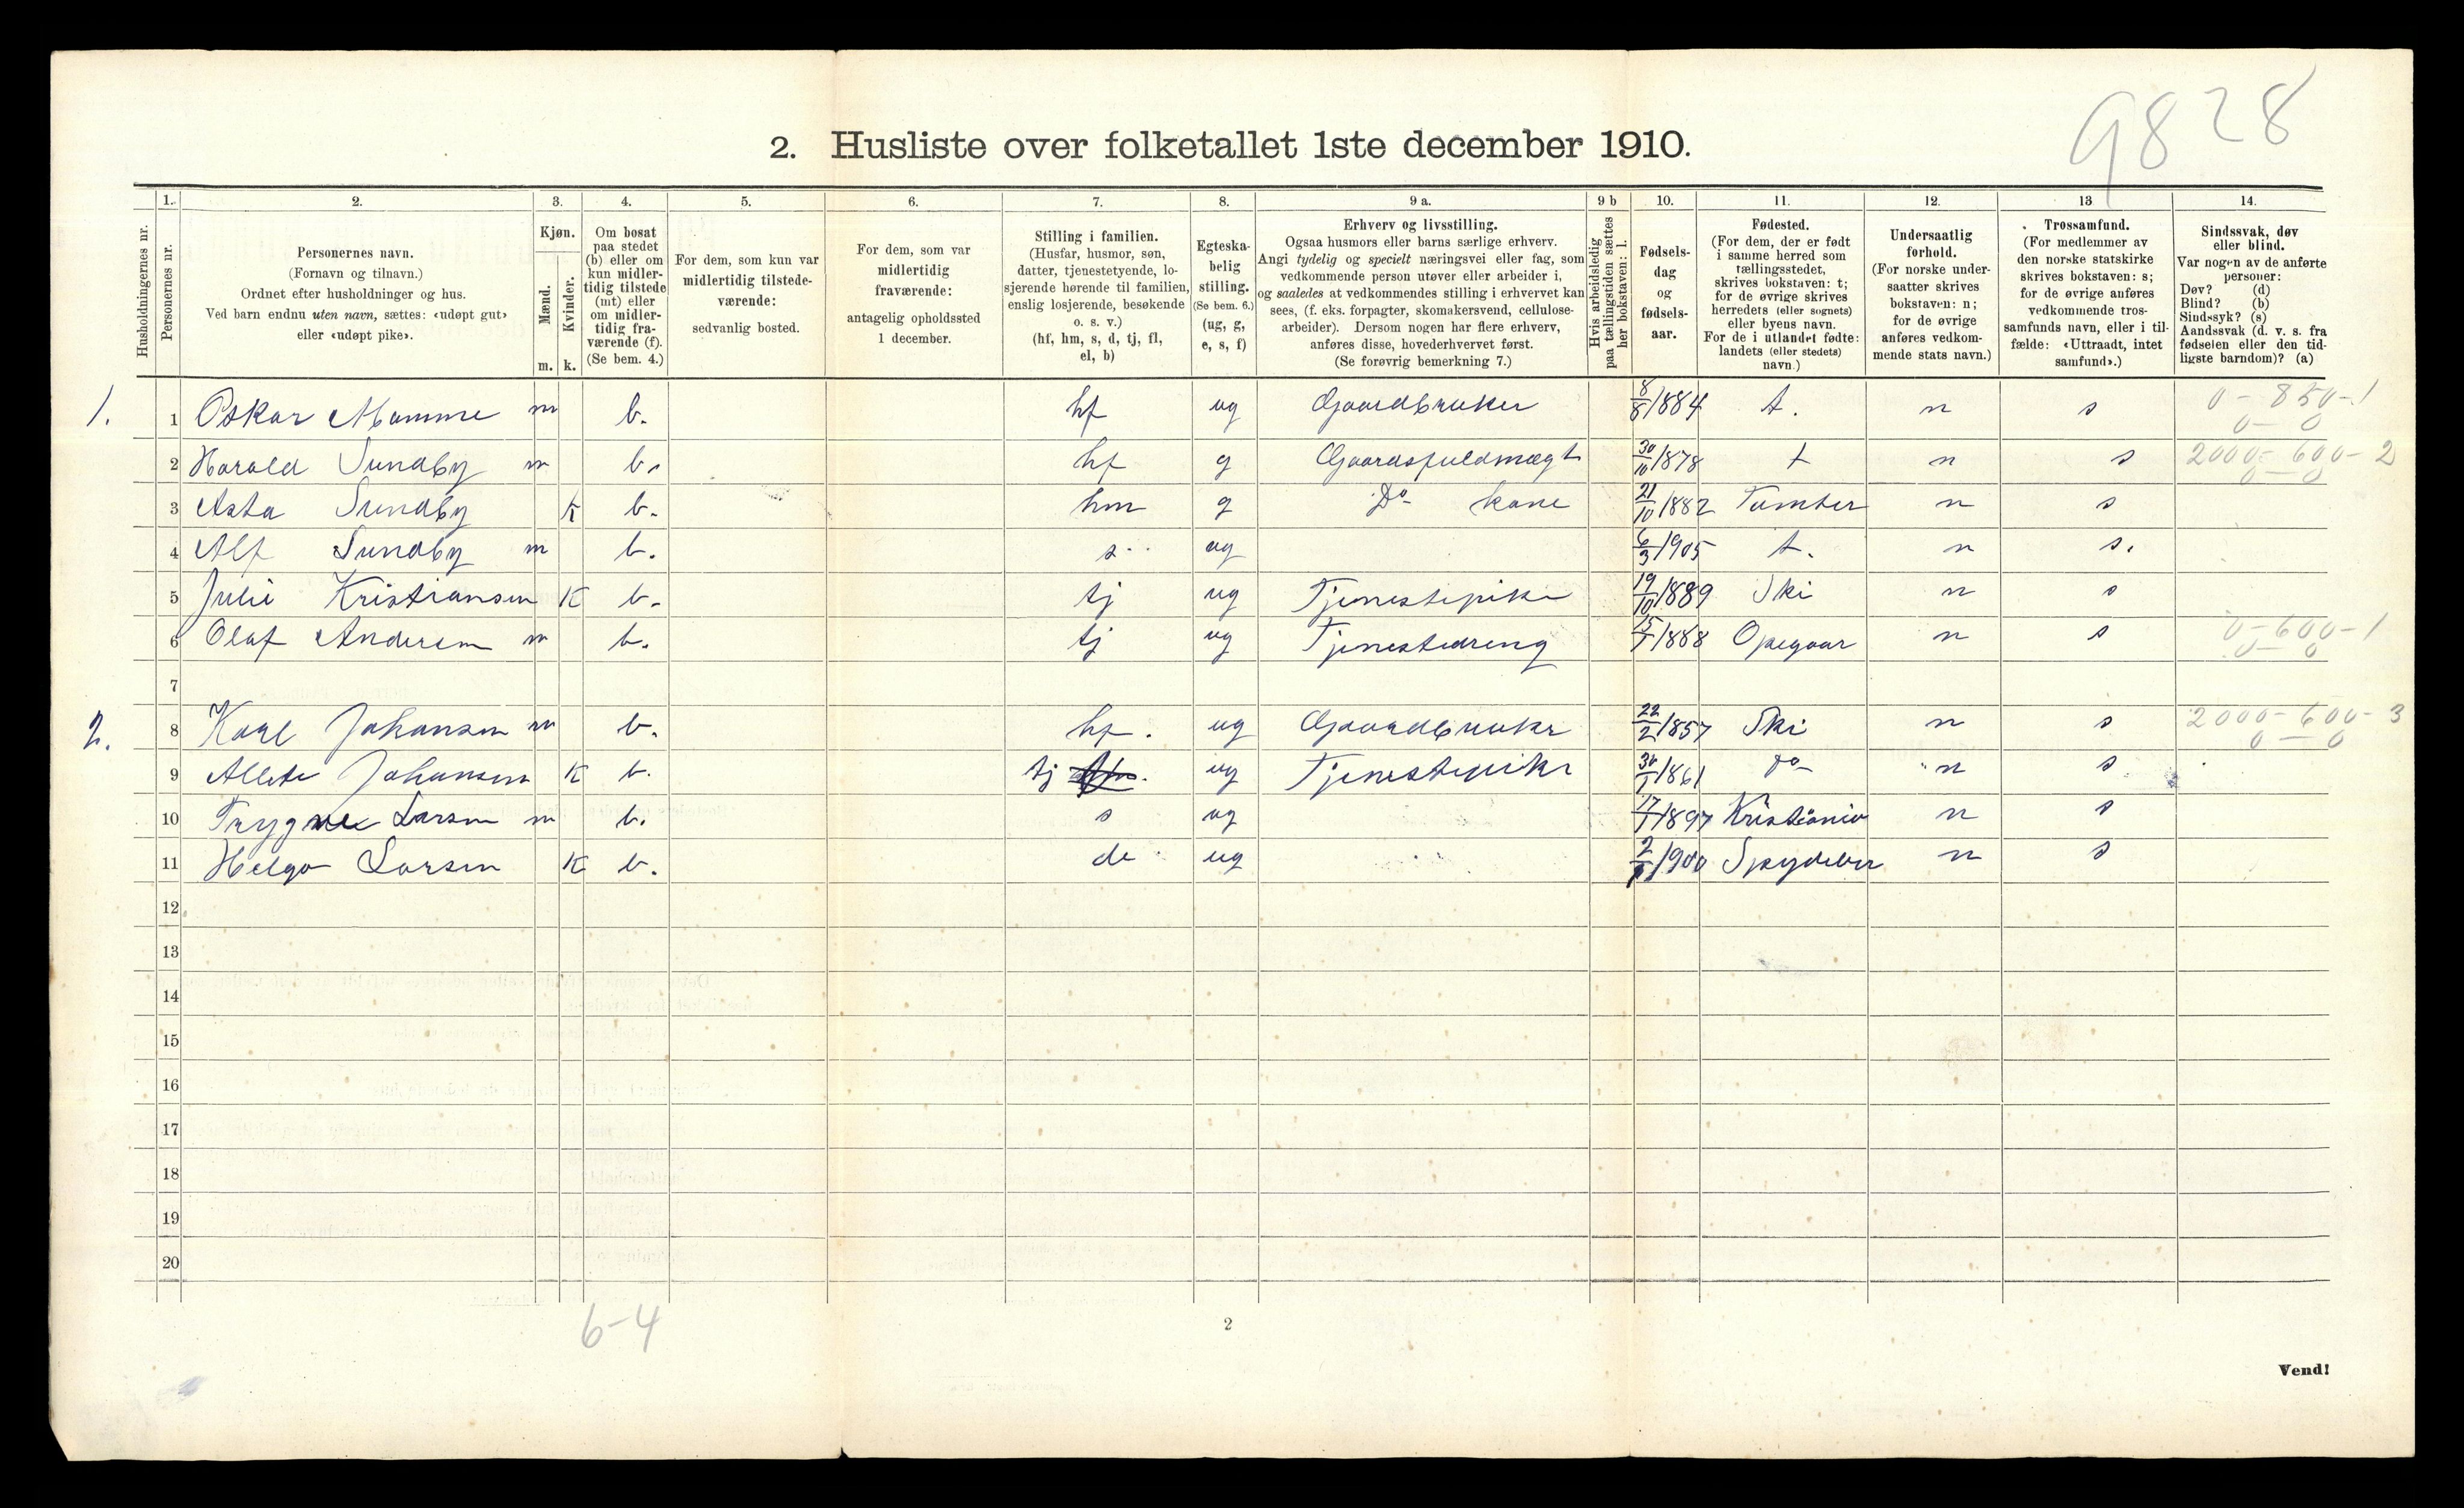 9828
2. Husliste over folketallet 1ste december 1910.
Husholdningernes nr.
1. Personernes nr.
2. Personernes navn. (Fornavn og tilnavn.) Ordnet efter husholdninger og hus. Ved barn endnu uten navn, sættes: «udøpt gut» eller «udøpt pike».
3. Kjøn. Mænd. m. Kvinder. k.
4. Om bosat paa stedet (b) eller om kun midlertidig tilstede (mt) eller om midlertidig fraværende (f). (Se bem. 4.)
5. For dem, som kun var midlertidig tilstedeværende: sedvanlig bosted.
6. For dem, som var midlertidig fraværende: antagelig opholdssted 1 december.
7. Stilling i familien. (Husfar, husmor, søn, datter, tjenestetyende, losjerende hørende til familien, enslig losjerende, besøkende o. s. v.) (hf, hm, s, d, tj, fl, el, b)
8. Egteskabelig stilling. (Se bem. 6.) (ug, g, e, s, f)
9 a. Erhverv og livsstilling. Ogsaa husmors eller barns særlige erhverv. Angi tydelig og specielt næringsvei eller fag, som vedkommende person utøver eller arbeider i, og saaledes at vedkommendes stilling i erhvervet kan sees, (f. eks. forpagter, skomakersvend, cellulosearbeider). Dersom nogen har flere erhverv, anføres disse, hovederhvervet først. (Se forøvrig bemerkning 7.)
9 b Hvis arbeidsledig paa tællingstiden sættes her bokstaven: l.
10. Fødselsdag og fødselsaar.
11. Fødested. (For dem, der er født i samme herred som tællingsstedet, skrives bokstaven: t; for de øvrige skrives herredets (eller sognets) eller byens navn. For de i utlandet fødte: landets (eller stedets) navn.)
12. Undersaatlig forhold. (For norske undersaatter skrives bokstaven: n; for de øvrige anføres vedkommende stats navn.)
13 Trossamfund. (For medlemmer av den norske statskirke skrives bokstaven: s; for de øvrige anføres vedkommende trossamfunds navn, eller i tilfælde: «Uttraadt, intet samfund».)
14. Sindssvak, døv eller blind. Var nogen av de anførte personer: Døv? (d) Blind? (b) Sindssyk? (s) Aandssvak (d. v. s. fra fødselen eller den tidligste barndom)? (a)
1. 1 Oskar Mamme m b. hf ug Gaardbruker 8/8 1884 t. n s 0 - 850 - 1 0 - 0
2 Harald Sundby m b. hf g Gaardsfuldmægt 30/10 1878 t n s 2000 - 600 - 2 0 - 0
3 Asta Sundby K b. hm g Do kone 21/10 1882 Tomter n s
4 Alf Sundby m b. s ug 6/3 1905 t. n s.
5 Julie Kristiansen K b. tj ug Tjenestepike 19/10 1889 Ski n s
6 Olaf Andersen m b. tj ug Tjenestedreng 15/1 1888 Opegaar n s 0 - 600 - 1 0 - 0
7
2. 8 Karl Johansen m b. hf. ug Gaardbruker 22/2 1857 Ski n s 2000 - 600 - 3 0 - 0
9 Allete Johansen K b. tj ug Tjenestepike 30/1 1861 do n s
10 Trygve Larsen m b. s ug 17/1 1897 Kristiania n s
11 Helga Larsen K b. d ug 1900 Spydeber n s
12
13
14
15
16
17
18
19
20
6-4
2
Vend!